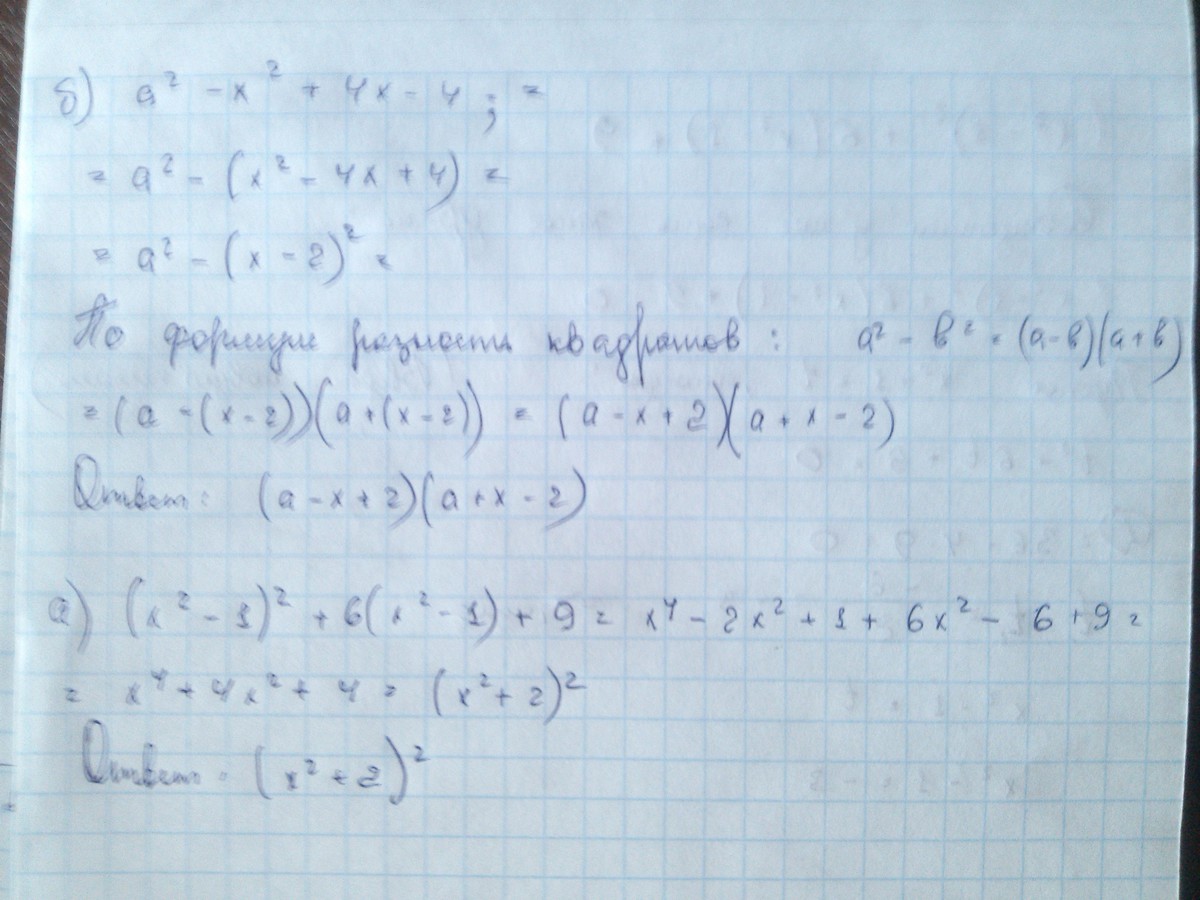 б) a² - x² + 4x - 4 ; =
= a² - (x² - 4x + 4) =
= a² - (x - 2)² =
По формуле разности квадратов : a² - b² = (a-b)(a+b)
= (a - (x-2))(a+(x-2)) = (a - x + 2)(a + x - 2)
Ответ: (a - x + 2)(a + x - 2)
а) (x² - 1)² + 6(x² - 1) + 9 = x⁴ - 2x² + 1 + 6x² - 6 + 9 =
= x⁴ + 4x² + 4 = (x² + 2)²
Ответ: (x² + 2)²